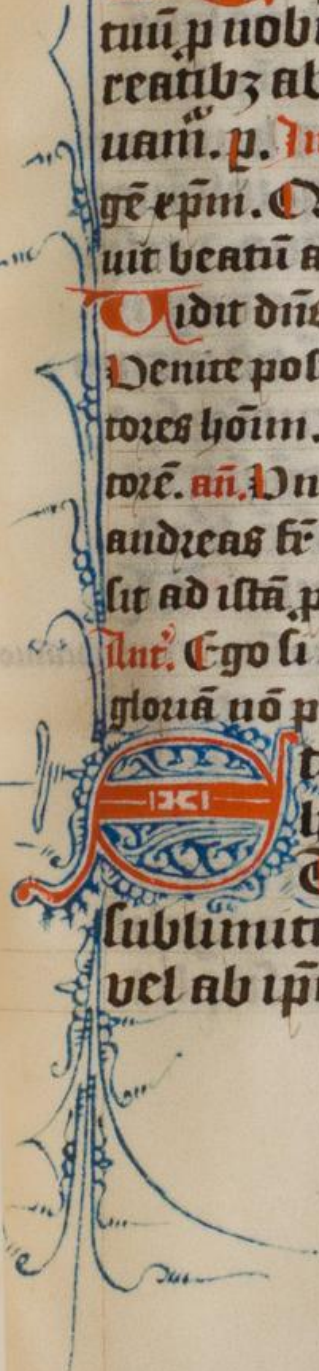 tuū p̱ nobi
reatibꝫ ab
uam̄. p̱. In
gē xp̄m. Q
uit beatū a
Vidit dn̄s
Venite pos
tores hōim.
torē. an̄. Vn
andreas fr̄
sit ad istā p
Ant. Ego si
gloriā nō p
E t
h
sublimit
vel ab ip̄